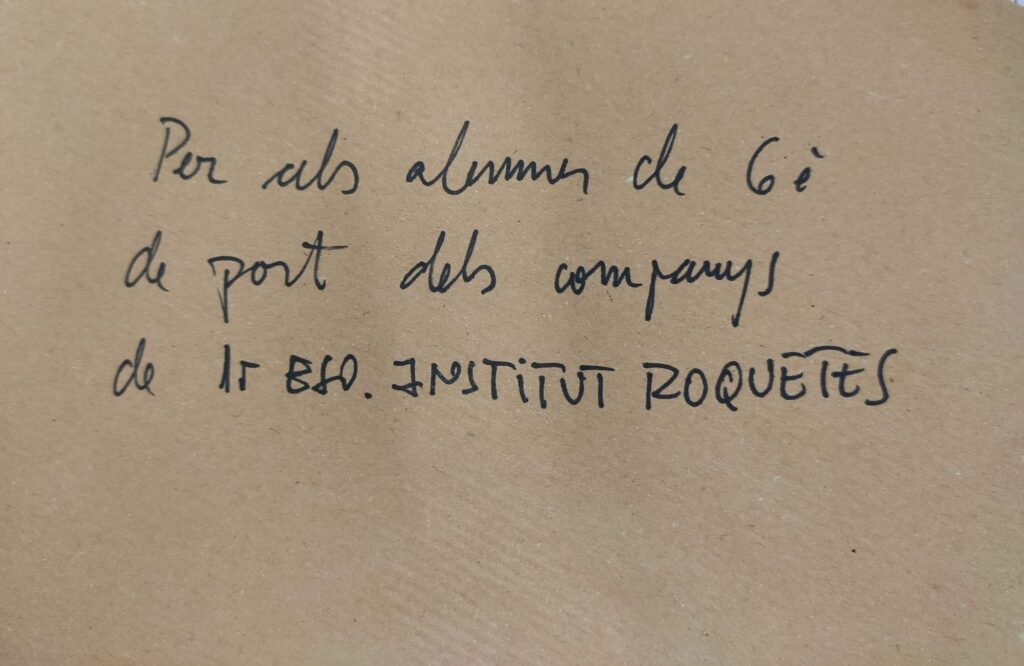 Per als alumnes de 6è
de part dels companys
de 1r ESO. INSTITUT ROQUETES